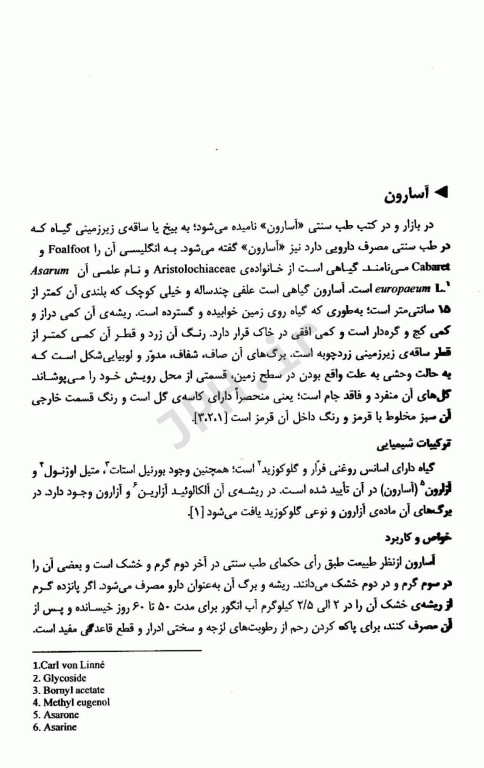 ◄ آسارون
در بازار و در کتب طب سنتی «آسارون» نامیده می‌شود؛ به بیخ یا ساقه‌ی زیرزمینی گیاه که
در طب سنتی مصرف دارویی دارد نیز «آسارون» گفته می‌شود. به انگلیسی آن را Foalfoot و
Cabaret می‌نامند. گیاهی است از خانواده‌ی Aristolochiaceae و نام علمی آن Asarum
europaeum L.¹ است. آسارون گیاهی است علفی چندساله و خیلی کوچک که بلندی آن کمتر از
۱۵ سانتی‌متر است؛ به‌طوری که گیاه روی زمین خوابیده و گسترده است. ریشه‌ی آن کمی دراز و
کمی کج و گره‌دار است و کمی افقی در خاک قرار دارد. رنگ آن زرد و قطر آن کمی کمتر از
قطر ساقه‌ی زیرزمینی زردچوبه است. برگ‌های آن صاف، شفاف، مدوّر و لوبیایی‌شکل است که
به حالت وحشی به علت واقع بودن در سطح زمین، قسمتی از محل رویش خود را می‌پوشاند.
گل‌های آن منفرد و فاقد جام است؛ یعنی منحصراً دارای کاسه‌ی گل است و رنگ قسمت خارجی
آن سبز مخلوط با قرمز و رنگ داخل آن قرمز است [۳،۲،۱].
ترکیبات شیمیایی
گیاه دارای اسانس روغنی فرّار و گلوکوزید² است؛ همچنین وجود بورنیل استات³، متیل اوژنول⁴ و
آزارون⁵ (آسارون) در آن تأیید شده است. در ریشه‌ی آن آلکالوئید آزارین⁶ و آزارون وجود دارد. در
برگ‌های آن ماده‌ی آزارون و نوعی گلوکوزید یافت می‌شود [۱].
خواص و کاربرد
آسارون ازنظر طبیعت طبق رأی حکمای طب سنتی در آخر دوم گرم و خشک است و بعضی آن را
در سوم گرم و در دوم خشک می‌دانند. ریشه و برگ آن به‌عنوان دارو مصرف می‌شود. اگر پانزده گرم
از ریشه‌ی خشک آن را در ۲ الی ۲/۵ کیلوگرم آب انگور برای مدت ۵۰ تا ۶۰ روز خیسانده و پس از
آن مصرف کنند، برای پاک کردن رحم از رطوبت‌های لزجه و سختی ادرار و قطع قاعدگی مفید است.
1.Carl von Linné
2. Glycoside
3. Bornyl acetate
4. Methyl eugenol
5. Asarone
6. Asarine
JMH.ir